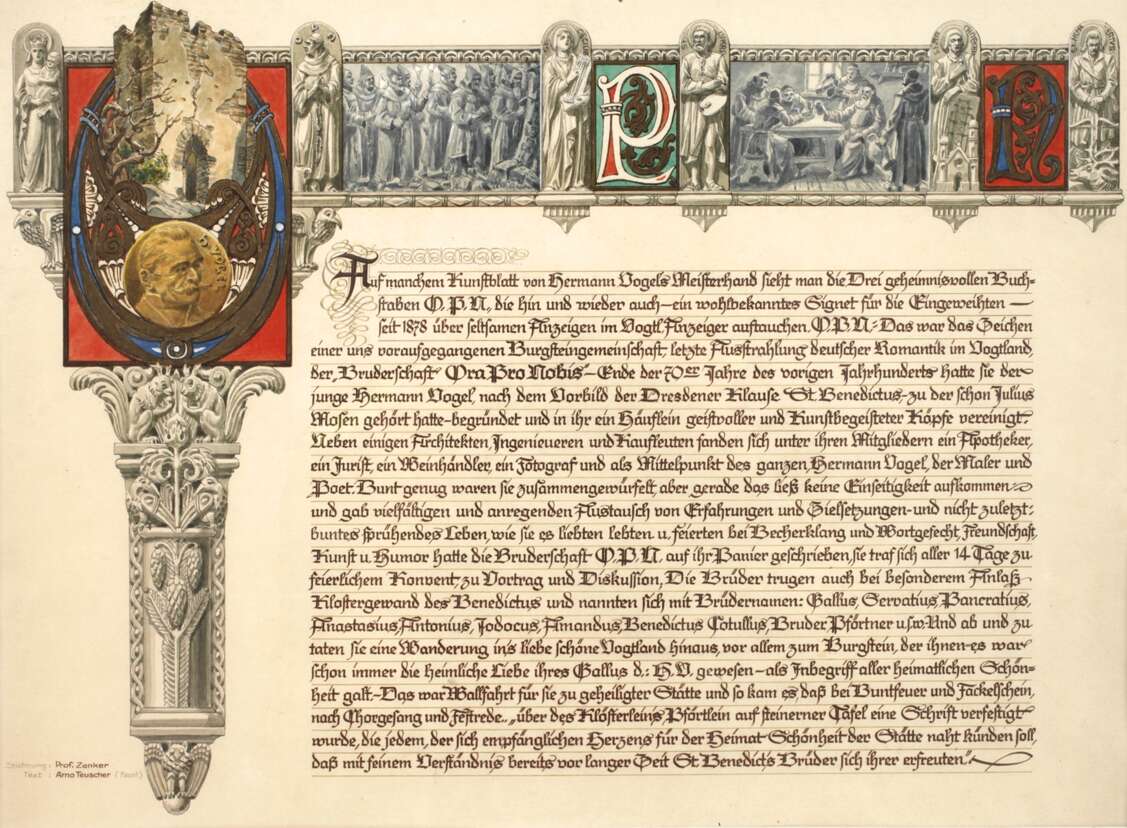 O
P
N
H. Vogel
Auf manchem Kunstblatt von Hermann Vogels Meisterhand sieht man die Drei geheimnisvollen Buch-
staben O. P. N., die hin und wieder auch – ein wohlbekanntes Signet für die Eingeweihten –
seit 1878 über seltsamen Anzeigen im Vogtl. Anzeiger auftauchen. O.P.N.: Das war das Zeichen
einer uns vorausgegangenen Burgsteingemeinschaft, letzte Ausstrahlung deutscher Romantik im Vogtland,
der „Bruderschaft Ora Pro Nobis“ – Ende der 70er Jahre des vorigen Jahrhunderts hatte sie der
junge Hermann Vogel, nach dem Vorbild der Dresdener Klause St. Benedictus – zu der schon Julius
Mosen gehört hatte – begründet und in ihr ein Häuflein geistvoller und Kunstbegeisteter Köpfe vereinigt.
Neben einigen Architekten, Ingenieueren und Kaufleuten fanden sich unter ihren Mitgliedern ein Apotheker,
ein Jurist, ein Weinhändler, ein Fotograf und als Mittelpunkt des ganzen, Hermann Vogel, der Maler und
Poet. Bunt genug waren sie zusammengewürfelt, aber gerade das ließ keine Einseitigkeit aufkommen
und gab vielfältigen und anregenden Austausch von Erfahrungen und Zielsetzungen – und nicht zuletzt:
buntes sprühendes Leben, wie sie es liebten lebten u. feierten bei Becherklang und Wortgefecht, Freundschaft,
Kunst u. Humor hatte die Bruderschaft O. P. N. auf ihr Panier geschrieben, sie traf sich aller 14 Tage zu
feierlichem Konvent, zu Vortrag und Diskussion, Die Brüder trugen auch bei besonderem Anlaß
Klostergewand des Benedictus und nannten sich mit Brüdernamen: Gallus, Servatius, Pancratius,
Anastasius, Antonius, Jodocus, Amandus, Benedictus Cotullus, Bruder Pförtner u.s.w. Und ab und zu
taten sie eine Wanderung in's liebe schöne Vogtland hinaus, vor allem zum Burgstein, der ihnen – es war
schon immer die heimliche Liebe ihres Gallus d.: H. V. gewesen – als Inbegriff aller heimatlichen Schön-
heit galt. – Das war Wallfahrt für sie zu geheiligter Stätte und so kam es, daß bei Buntfeuer und Fackelschein,
nach Chorgesang und Festrede.. „über des Klösterleins Pförtlein auf steinerner Tafel eine Schrift verfestigt
wurde, die jedem, der sich empfänglichen Herzens für der Heimat Schönheit der Stätte naht künden soll,
daß mit feinem Verständnis bereits vor langer Zeit St. Benedict's Brüder sich ihrer erfreuten.“
Zeichnung: Prof. Zenker
Text: Arno Teuscher (Font)